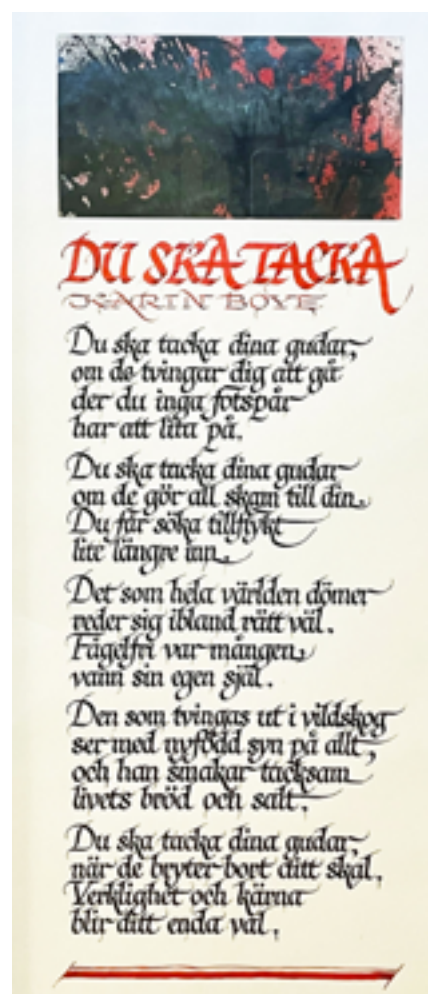 DU SKA TACKA
KARIN BOYE
Du ska tacka dina gudar,
om de tvingar dig att gå
der du inga fotspår
har att lita på.
Du ska tacka dina gudar
om de gör all skam till din.
Du får söka tillflykt
lite längre inn.
Det som hela världen dömer
reder sig ibland rätt väl.
Fågelfri var mången,
vann sin egen själ.
Den som tvingas ut i vildskog
ser med nyfödd syn på allt,
och han smakar tacksam
livets bröd och salt.
Du ska tacka dina gudar,
när de bryter bort ditt skal.
Verklighet och kärna
blir ditt enda val.